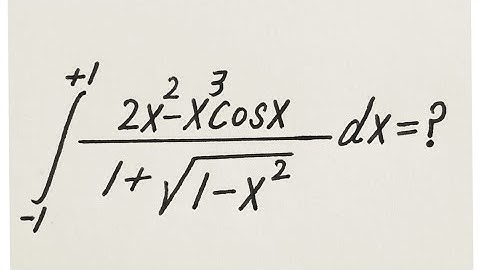 ∫_{-1}^{+1} \frac{2x^2-x^3cosx}{1+\sqrt{1-x^2}} dx=?